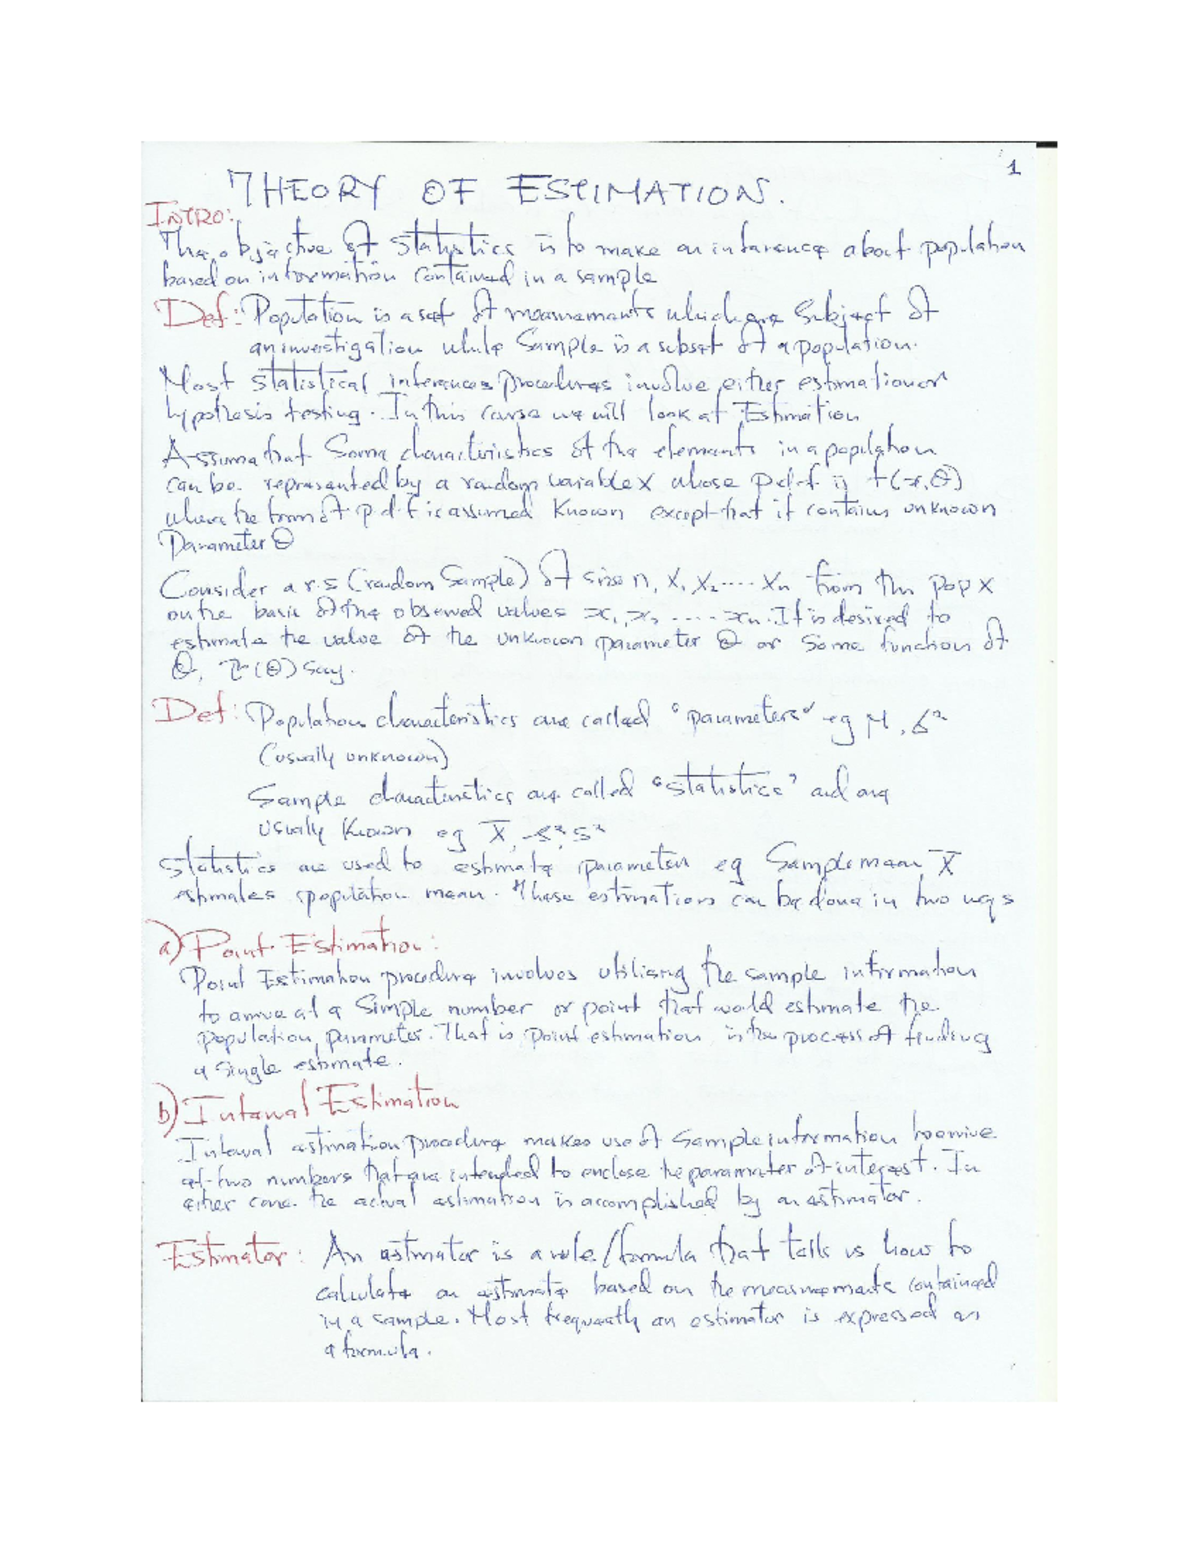 1
THEORY OF ESTIMATION.
INTRO:
The objective of statistics is to make an inference about population
based on information contained in a sample
Def: Population is a set of measurements which are subject of
an investigation while Sample is a subset of a population.
Most statistical inferences procedures involve either estimation or
hypothesis testing. In this course we will look at Estimation
Assume that Some characteristics of the elements in a population
can be represented by a random variable X whose p.d.f is f(x,θ)
where the form of p.d.f is assumed Known except that it contains unknown
Parameter θ
Consider a r.s (random Sample) of size n, X₁ X₂ .... Xn from the pop X
on the basis of the observed values x₁, x₂ .... xn. It is desired to
estimate the value of the unknown parameter θ or some function of
θ, τ(θ) say.
Def: Population characteristics are called "parameters" eg μ, δ²
(usually unknown)
Sample characteristics are called "statistics" and are
usually Known eg X̄, S²
Statistics are used to estimate parameter eg Sample mean X̄
estimates population mean. These estimations can be done in two ways
a) Point Estimation:
Point Estimation procedure involves utilising the sample information
to arrive at a Simple number or point that would estimate the
population parameter. That is point estimation is the process of finding
a single estimate.
b) Interval Estimation
Interval estimation procedure makes use of Sample information to arrive
at two numbers that are intended to enclose the parameter of interest. In
either case the actual estimation is accomplished by an estimator.
Estimator: An estimator is a rule/formula that tells us how to
calculate an estimate based on the measurements contained
in a sample. Most frequently an estimator is expressed as
a formula.